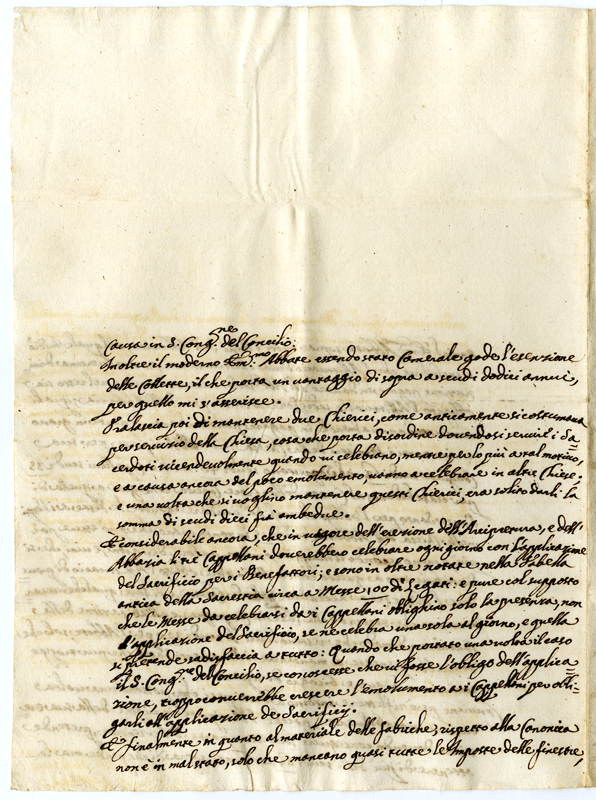 Causa in S. Cong.ne del Concilio.
Inoltre il moderno Em.mo Abbate essendo stato Camerale gode l'esenzione
delle Collette, il che porta un vantaggio di sopra a scudi dodici annui,
per quello mi s'asserisce.
Tralascia poi di mantenere due Chierici, come anticamente si costumava
per servizio della Chiesa, cosa che porta disordine dovendosi servire i Sa
cerdoti vicendevolmente quando vi celebrano, mentre per lo più a tal motivo,
e a causa ancora del poco emolumento, vanno a celebrare in altre Chiese.
e una volta che si voglino mantenere questi Chierici era solito darli la
somma di scudi dieci frà ambedue.
È considerabile ancora, che in vigore dell'erezione dell'Arcipretura, e dell'
Abbazia li trè Cappellani doverebbero celebrare ogni giorno con l'applicazione
del Sacrificio per i Benefattori; e sono in oltre notate nella Tabella
antica della Sacrestia circa a Messe 100 di Legati: e pure col supposto
che le Messe da celebrarsi da i Cappellani oblighino solo la presenza, non
l'applicazione del Sacrificio, se ne celebra una sola al giorno, e quella
si pretende sadisfaccia a tutto: Quando che portato una volta il caso
il S. Cong.ne del Concilio, se conoscesse che vi fosse l'obligo dell'applica
zione, troppo converrebbe crescere l'emolumento a i Cappellani per obli-
garli all'applicazione de Sacrificij.
E finalmente in quanto al materiale delle fabriche; rispetto alla Canonica
non è in mal stato, solo che mancano quasi tutte le Imposte delle finestre,